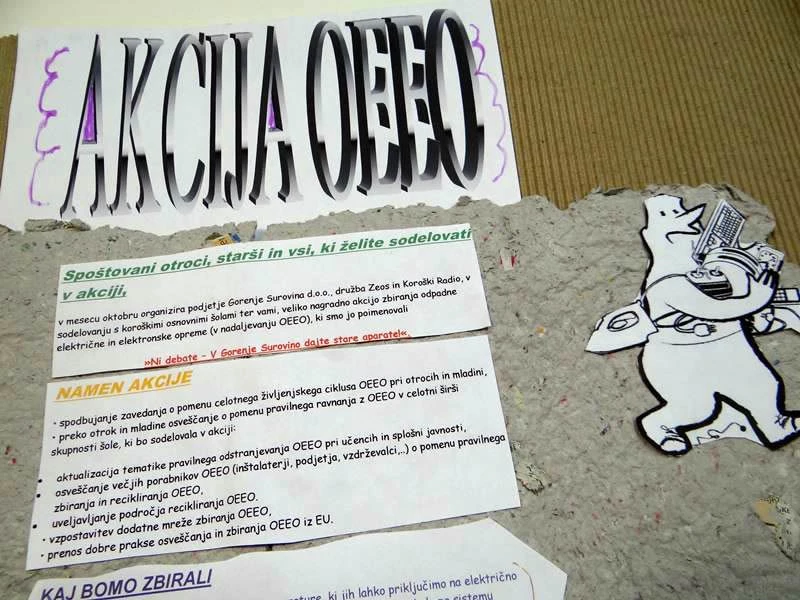 AKCIJA OEEO
Spoštovani otroci, starši in vsi, ki želite sodelovati
v akciji,
v mesecu oktobru organizira podjetje Gorenje Surovina d.o.o., družba Zeos in Koroški Radio, v
sodelovanju s koroškimi osnovnimi šolami ter vami, veliko nagradno akcijo zbiranja odpadne
električne in elektronske opreme (v nadaljevanju OEEO), ki smo jo poimenovali
»Ni debate – V Gorenje Surovino dajte stare aparate!«.
NAMEN AKCIJE
• spodbujanje zavedanja o pomenu celotnega življenjskega ciklusa OEEO pri otrocih in mladini,
• preko otrok in mladine osveščanje o pomenu pravilnega ravnanja z OEEO v celotni širši
skupnosti šole, ki bo sodelovala v akciji:
• aktualizacija tematike pravilnega odstranjevanja OEEO pri učencih in splošni javnosti,
• osveščanje večjih porabnikov OEEO (inštalaterji, podjetja, vzdrževalci,..) o pomenu pravilnega
zbiranja in recikliranja OEEO,
• uveljavljanje področja recikliranja OEEO.
• vzpostavitev dodatne mreže zbiranja OEEO,
• prenos dobre prakse osveščanja in zbiranja OEEO iz EU.
KAJ BOMO ZBIRALI
ki jih lahko priključimo na električno
sistemu